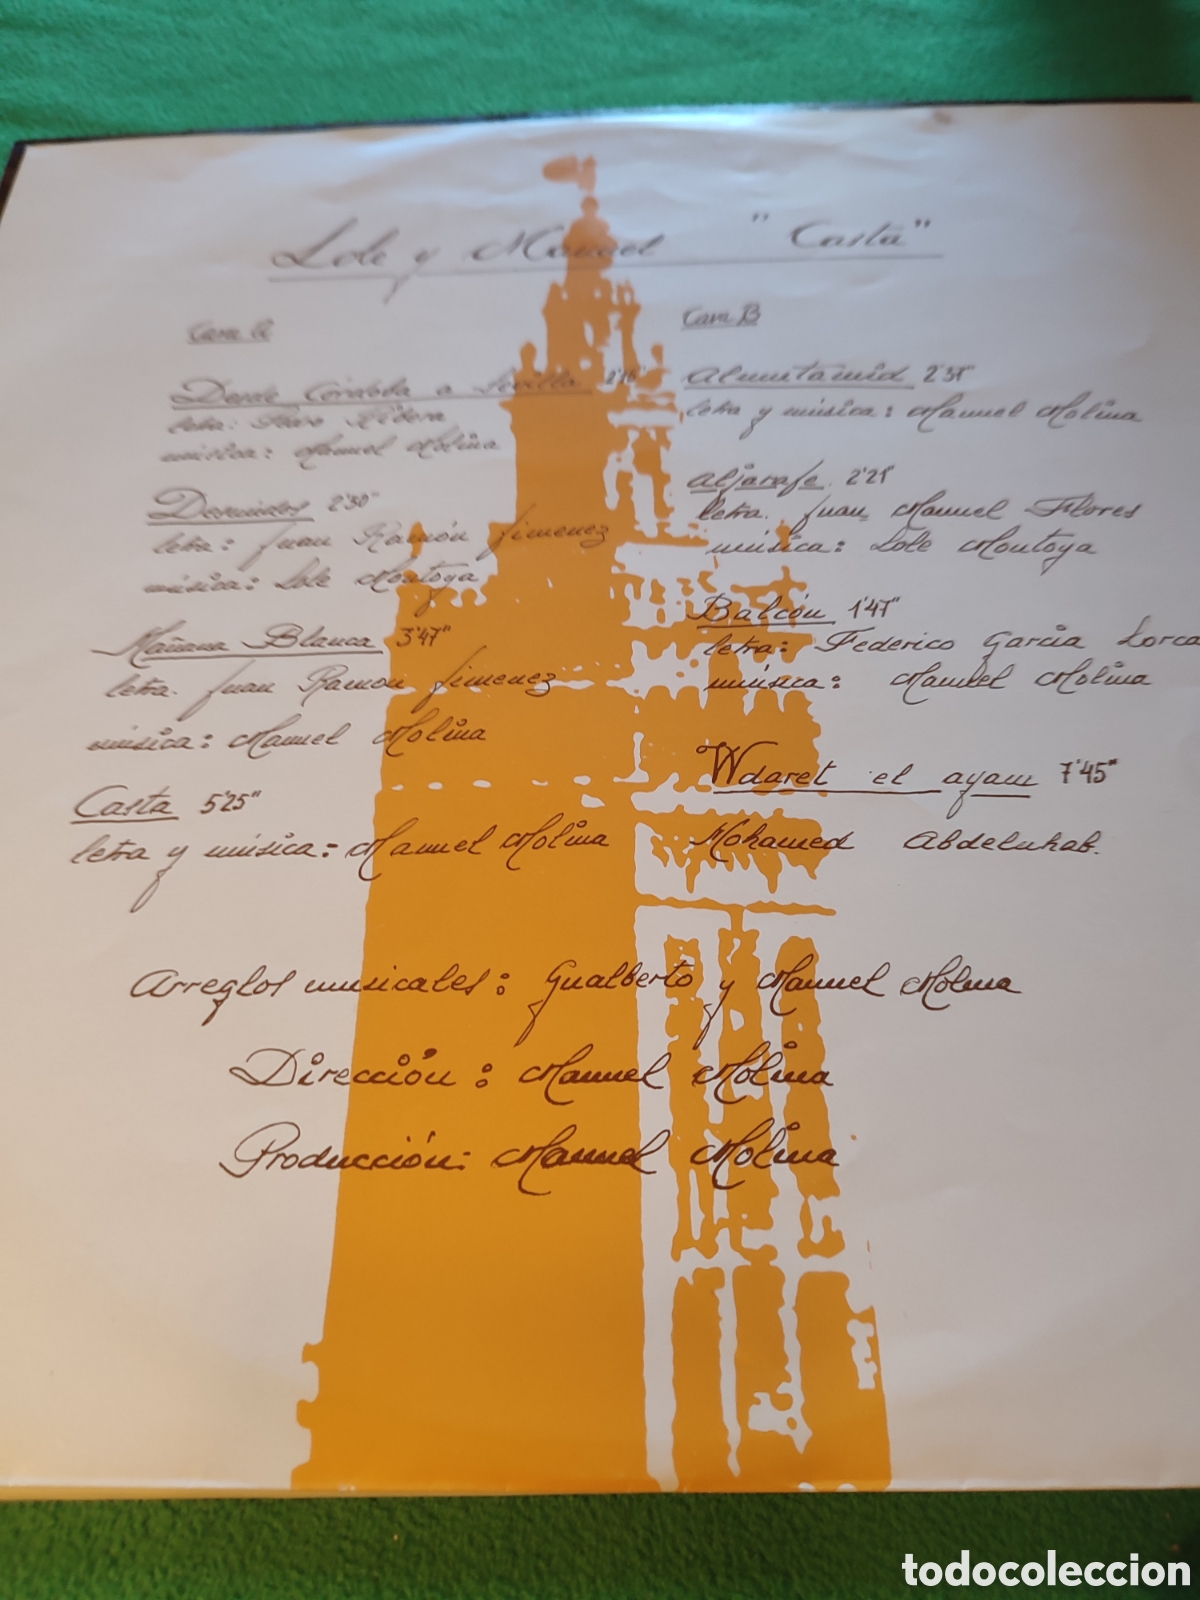 Lole y Manuel "Casta"
Cara A
Desde Córdoba a Sevilla
letra: Ribera
música: Manuel Molina
Desnudos 2'30"
letra: Juan Ramón Jimenez
música: Lole Montoya
Mañana Blanca 3'47"
letra. Juan Ramon Jimenez
música: Manuel Molina
Casta 5'25"
letra y música: Manuel Molina
Cara B
Almutamid
letra y música: Manuel Molina
Aljarafe. 2'21"
letra. Juan Manuel Flores
música: Lole Montoya
Balcón 1'47"
letra: Federico García Lorca
música: Manuel Molina
Wdaret el ayam 7'45"
Mohamed Abdeluhab.
Arreglos musicales: Gualberto y Manuel Molina
Dirección: Manuel Molina
Producción: Manuel Molina
todocoleccion